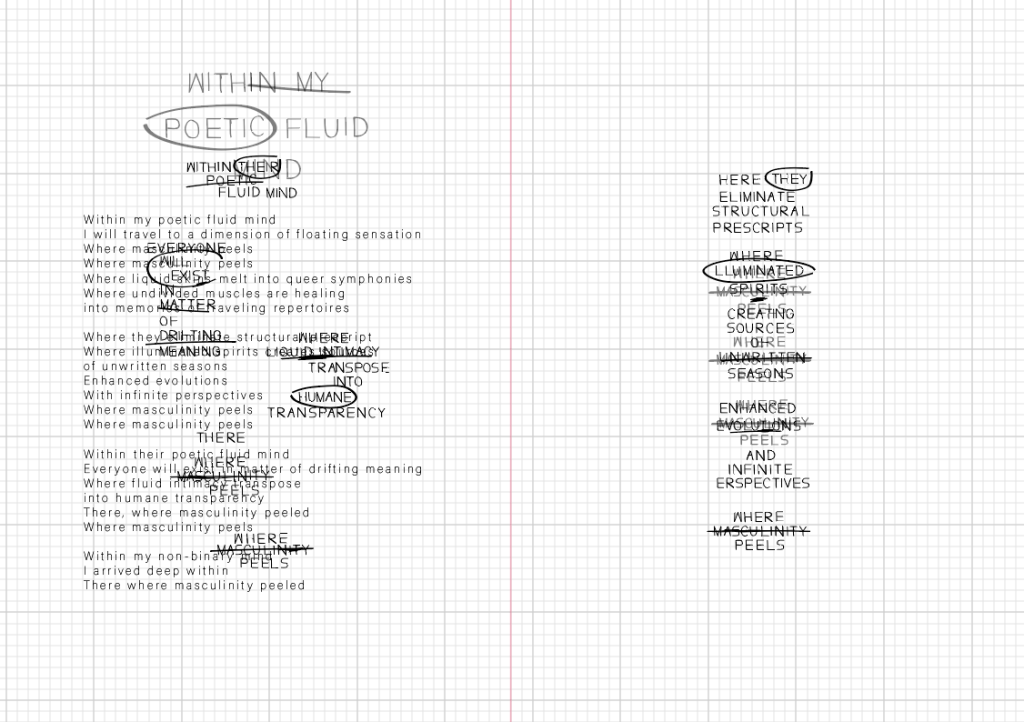 WITHIN MY
POETIC FLUID
MIND
WITHIN THEIR
POETIC
FLUID MIND
Within my poetic fluid mind
I will travel to a dimension of floating sensation
Where masculinity peels
Where masculinity peels
Where liquid skins melt into queer symphonies
Where undivided muscles are healing
into memories of traveling repertoires
EVERYONE
WILL
EXIST
IN
MATTER
OF
DRIFTING
MEANING
Where they eliminate structural script
Where illuminated spirits creates
of unwritten seasons
Enhanced evolutions
With infinite perspectives
Where masculinity peels
Where masculinity peels
WHERE
LIQUID INTIMACY
TRANSPOSE
INTO
HUMANE
TRANSPARENCY
THERE
Within their poetic fluid mind
Everyone will exist in matter of drifting meaning
Where fluid intimacy transpose
into humane transparency
There, where masculinity peeled
Where masculinity peels
WHERE
MASCULINITY
PEELS
WHERE
MASCULINITY
PEELS
Within my non-binary mind
I arrived deep within
There where masculinity peeled
HERE THEY
ELIMINATE
STRUCTURAL
PRESCRIPTS
WHERE
ILLUMINATED
SPIRITS
WHERE
MASCULINITY
PEELS
CREATING
SOURCES
OF
UNWRITTEN
SEASONS
WHERE
MASCULINITY
PEELS
ENHANCED
EVOLUTIONS
WHERE
MASCULINITY
PEELS
AND
INFINITE
ERSPECTIVES
WHERE
MASCULINITY
PEELS